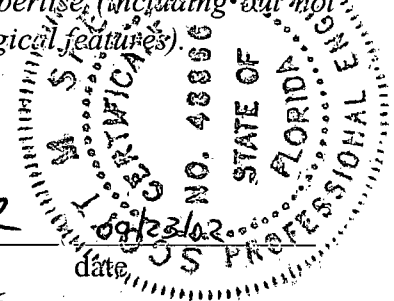 expertise (including but not
gical features).
CERTIFICATE
NO. 48866
STATE OF
FLORIDA
PROFESSIONAL ENG
09/23/02
date